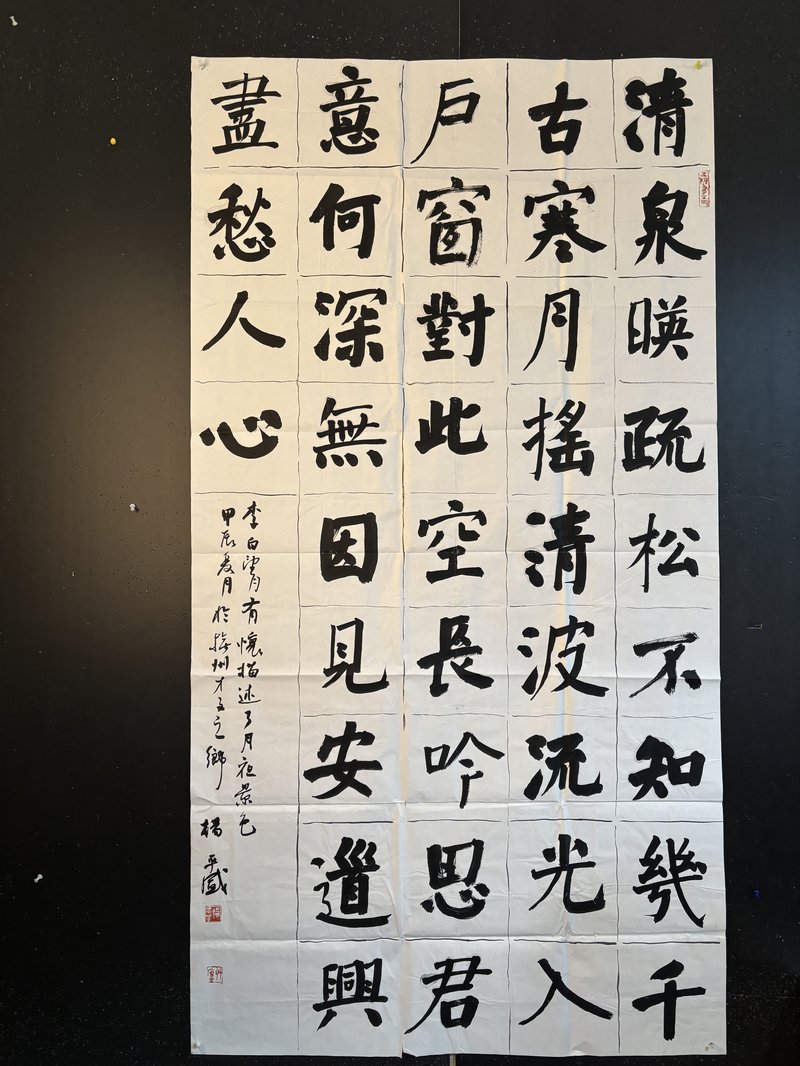 清泉暎疏松不知幾千
古寒月搖清波流光入
戶窗對此空長吟思君
意何深無因見安道興
盡愁人心
李白望月有懷描述了月夜景色
甲辰夏月於撫州才子之鄉
楊平盛